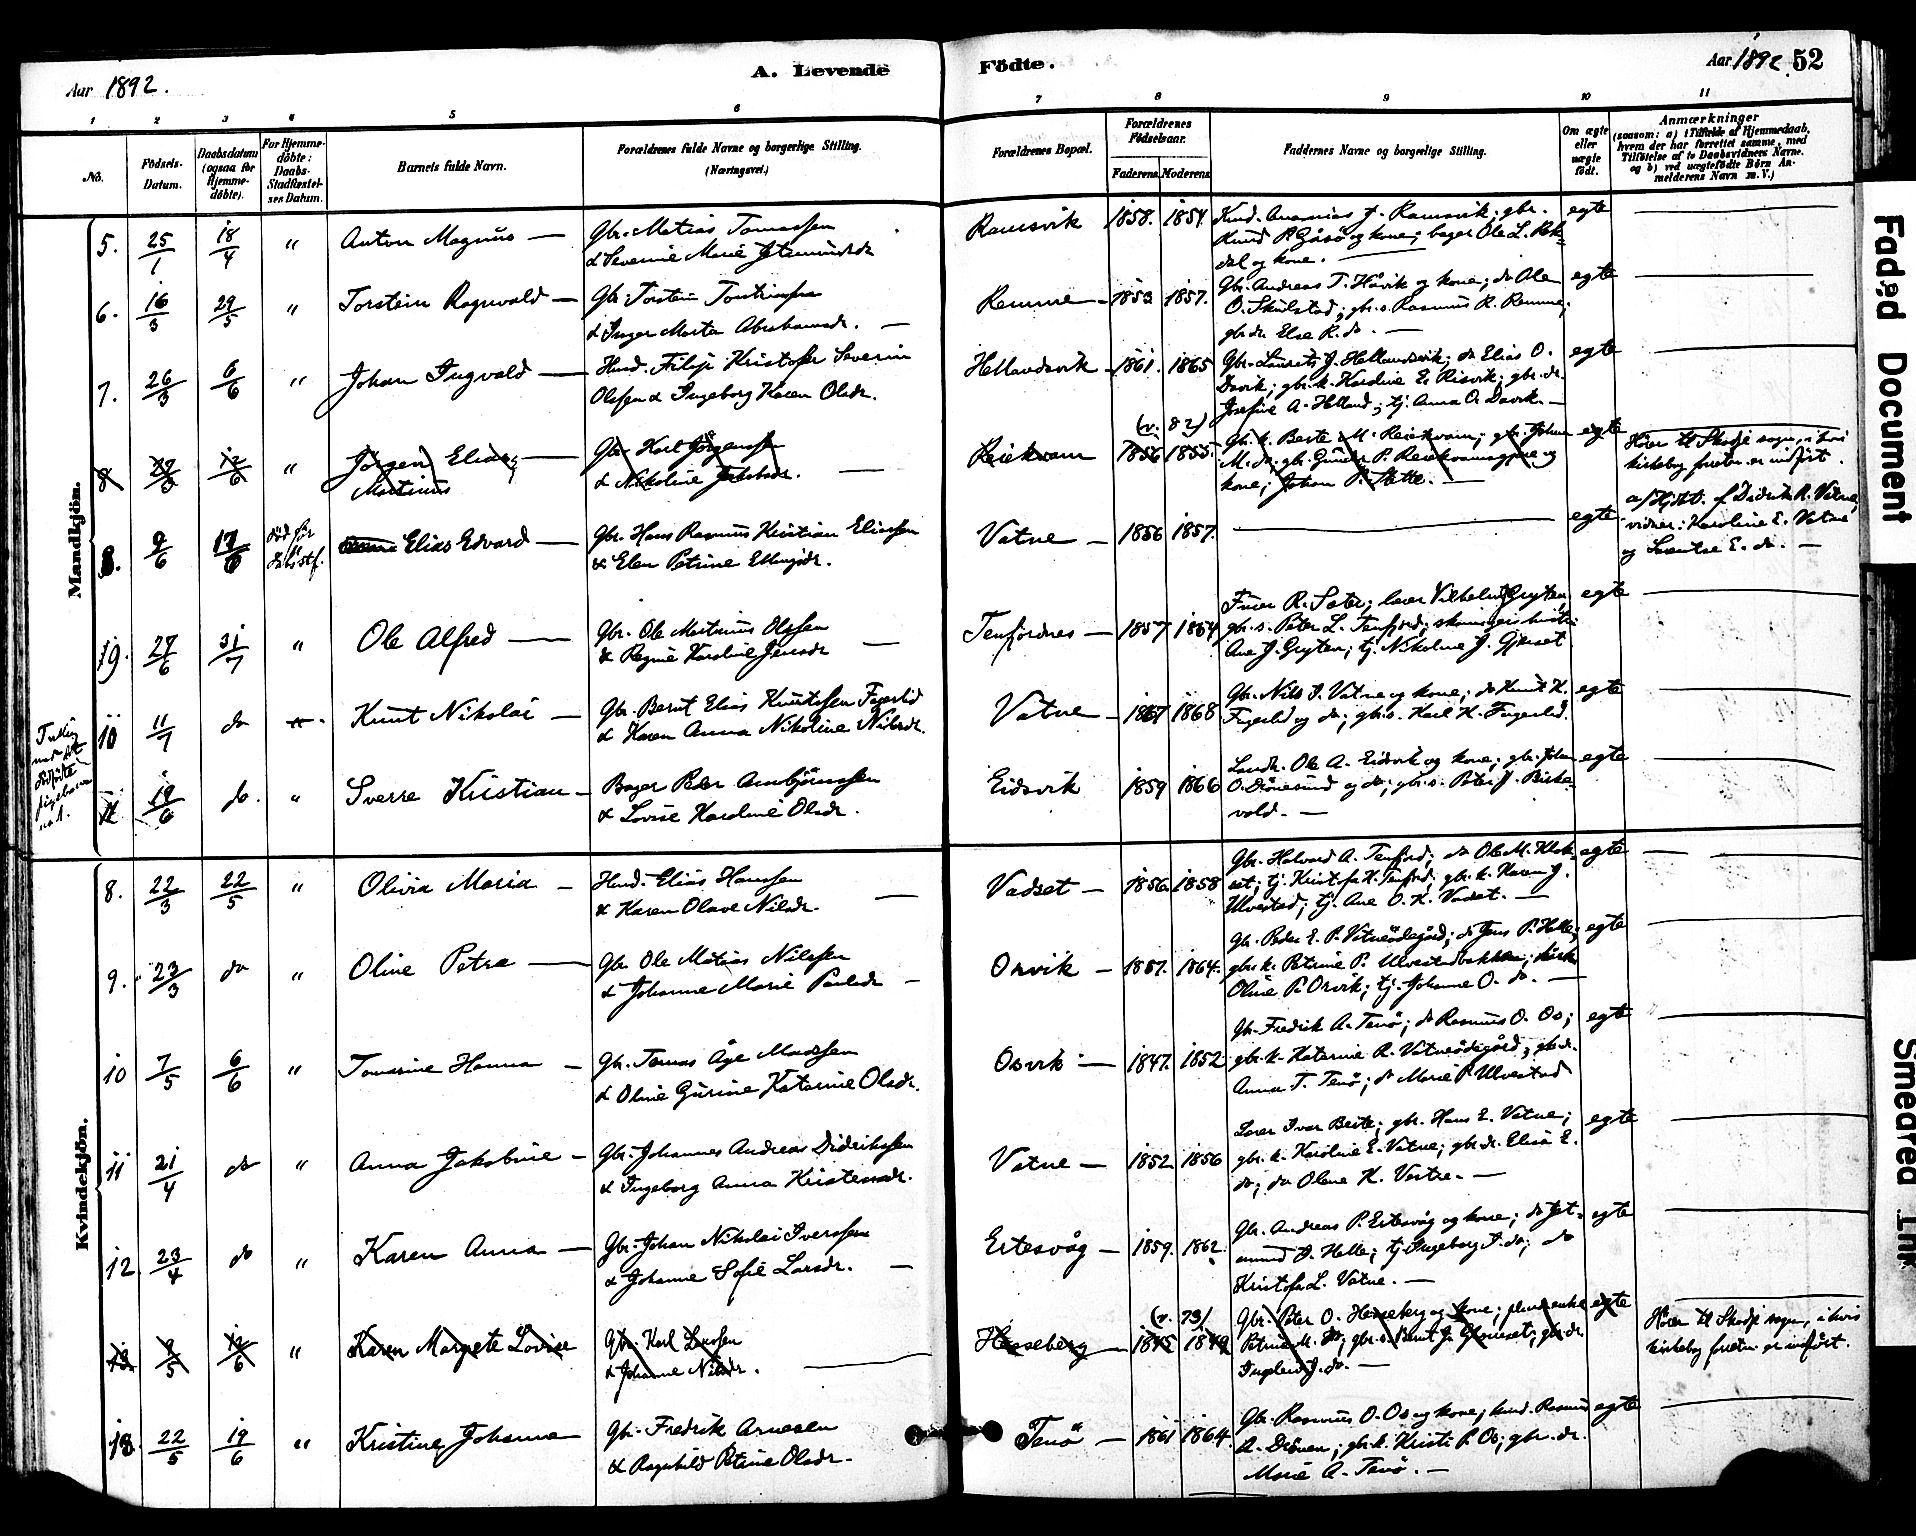 Aar 1892.
A. Levende
Födte.
Aar 1892. 52
1 2 3 4 5 6 7 8 9 10 11
No.
Födsels-Datum.
Daabsdatum (ogsaa for Hjemmedöbte).
For Hjemmedöbte: Daabs-Stadfæstelses Datum.
Barnets fulde Navn.
Forældrenes fulde Navne og borgerlige Stilling.
(Næringsvei.)
Forældrenes Bopæl.
Forældrenes Födselsaar.
Faderens. Moderens.
Faddernes Navne og borgerlige Stilling.
Om ægte eller uægte födt.
Anmærkninger
(saasom: a) i Tilfælde af Hjemmedaab, hvem der har forrettet samme, med Tilföielse af to Daabsvidners Navne, og b) ved uægtefödte Börn Anmelderens Navn m. V.)
Mandkjön.
5. 25/1 18/4 " Anton Magnus — Gbr. Matias Tomassen
& Severine Marie Jetmundsdr.
Ramsvik 1858. 1854. egte
Knud P. Gåsö og kone; bager Ole L.
dal og kone.
6. 16/3 29/5 " Torstein Ragnvald — Gbr. Torstein
& Inger Marta Abrahamsdr. —
Remme — 1853 1857. Gbr. Andreas T. Håvik og kone; do Ole egte
O. Skulstad; gbr. s. Rasmus R. Remme;
gbr. dr. Else R. do. —
7. 26/3 6/6 " Johan Ingvald — Husd. Filip Kristofer Severin
Olssen & Ingeborg Karen Olsdr.
Hellandsvik — 1861. 1865 Gbr. Laurits J. Hellandsvik; do Elias O. egte
Davik; gbr. k. Karoline E. Risvik; gbr. dr.
Josefine A. Helland; tj. Anna O. Davik. —
(v. 82)
8 12/6 " Jörgen Elias — Gbr. Karl Jörgenssen
Martinus & Nikoline Jakobsdr. —
Reiekvam 1856 1855. Gbr. k. Berte M. Reiekvam; gbr. Johan egte
M. do; gbr. Gunder P. Reiekvamsgjære og
kone; Johan P. Slette. —
Hører til Skodje sogn, i hvis
kirkebog foreten. er indført.
8. 9/6 17/6 död før Elias Edvard — Gbr. Hans Rasmus Kristian Eliassen
& Elen Petrine Ellingsdr.
Vatne — 1856 1857. — egte
af Didrik R. Vatne,
vidner: Karoline E. Vatne
og E. do. —
9. 27/6 31/7 " Ole Alfred — Gbr. Ole Martinus Olssen
& Regine Karoline Jensdr —
Tenfjordnes — 1857 1864 Einer R. Sæter; lærer Vilhelm Gryten; egte
gbr. s. Peter L. Tenfjord;
Ane J. Gryten; tj. Nikoline J. Gjerset
10 11/7 do " Knut Nikolai — Gbr. Bernt Elias Knutssen Fagerlid
& Karen Anna Nikoline Nilsdr.
Vatne — 1867 1868 Gbr. Nils J. Vatne og kone; do Knut K. egte
Fagerlid og do; gbr. s. Karl K. Fagerlid.
11 19/6 do. " Sverre Kristian — Bager Peder Arnbjörnssen
& Lovise Karoline Olsdr.
Eidsvik 1859 1866 Landh. Ole A. Eidsvik og kone; gbr. Johan egte
O. Drönesund og do; gbr. s. Peter J. Birke-
vold. —
Kvindekjön.
8. 22/3 22/5 " Olivia Maria — Husd. Elias Hanssen
& Karen Olave Nilsdr —
Vadset — 1856 1858 Gbr. Halvard A. Tenfjord; do Ole M. Klok- egte
set; tj. Kristofer K. Tenfjord; gbr. k. Karen J.
Ulvestad; tj. Ane O. K. Vadset. —
9. 23/3 do " Oline Petra — Gbr. Ole Matias Nilssen
& Johanne Marie Paulsdr —
Osvik — 1857. 1864. Gbr. Peder E. P. Vatneödegård; do Jens P. Helle; egte
gbr. k. Petrine P. Ulvestadbakken;
Oline P. Osvik; tj. Johanne O. do. —
10 7/5 6/6 " Tomasine Hanna — Gbr. Tomas Åge Madssen
& Oline Gurine Katarine Olsdr.
Osvik — 1847. 1852 Gbr. Fredrik A. Tenö; do Rasmus O. Os; egte
gbr. k. Katarine R. Vatneödegård; gbr. dr.
Anna T. Tenö; do Marie P. Ulvestad
11 21/4 do " Anna Jakobine — Gbr. Johannes Andreas Didrikssen
& Ingeborg Anna Kristensdr.
Vatne — 1852 1856 Lærer Ivar Beite; gbr. Hans E. Vatne; egte
gbr. k. Karoline E. Vatne; gbr. dr. Elisa E.
do; do Olave K. Vestre. —
12 23/4 do " Karen Anna — Gbr. Johan Nikolai Iverssen
& Johanne Sofie Larsdr. —
Estesvåg — 1859. 1862. Gbr. Andreas P. Estesvåg og kone; do Jet- egte
mund J. Helle; tj. Ingeborg J. do; do
Kristofer L. Vatne. —
(v. 73)
13 9/5 12/6 " Karen Margrete Lovise Gbr. Karl Larssen
& Johanne Nilsdr. —
Hesseberg 1845 1849 Gbr. Peter O. Hesseberg og kone; egte
Petrine M. do; gbr. s. Bernt J. Glomset; gbr. dr.
J. do. —
Hører til Skodje sogn, i hvis
kirkebog foreten. er indført.
13. 22/5 19/6 " Kristine Johanna Gbr. Fredrik Arnesen
& Ragnhild Petrine Olsdr. —
Tenö — 1861 1864. Gbr. Rasmus O. Os og kone; husd. Rasmus egte
A. Drönen; gbr. k. Kristi P. Os; gbr. dr.
Marie A. Tenö. —
Faded Document
Smeared Ink